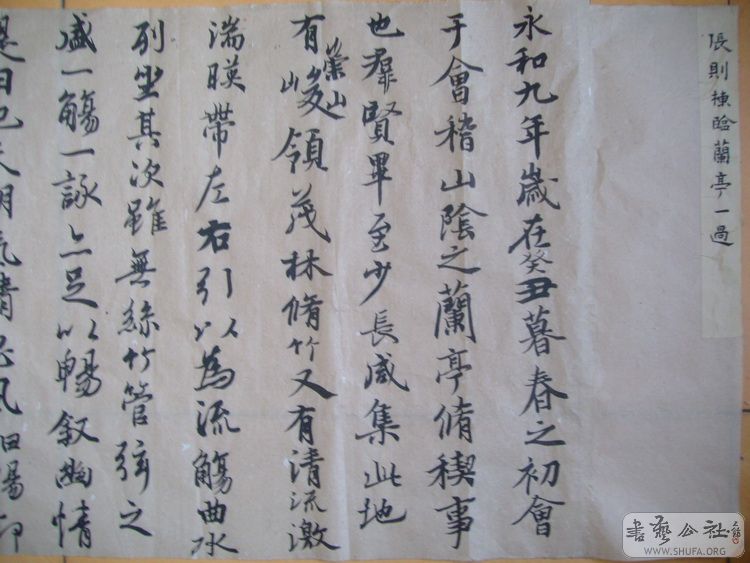 張則棟臨蘭亭一過
永和九年歲在癸丑暮春之初會
于會稽山陰之蘭亭脩稧事
也羣賢畢至少長咸集此地
有崇山峻領茂林脩竹又有清流激
湍暎帶左右引以為流觴曲水
列坐其次雖無絲竹管弦之
盛一觴一詠亦足以暢敘幽情
是日也天朗氣清惠風和暢仰
書藝公社
WWW.SHUFA.ORG